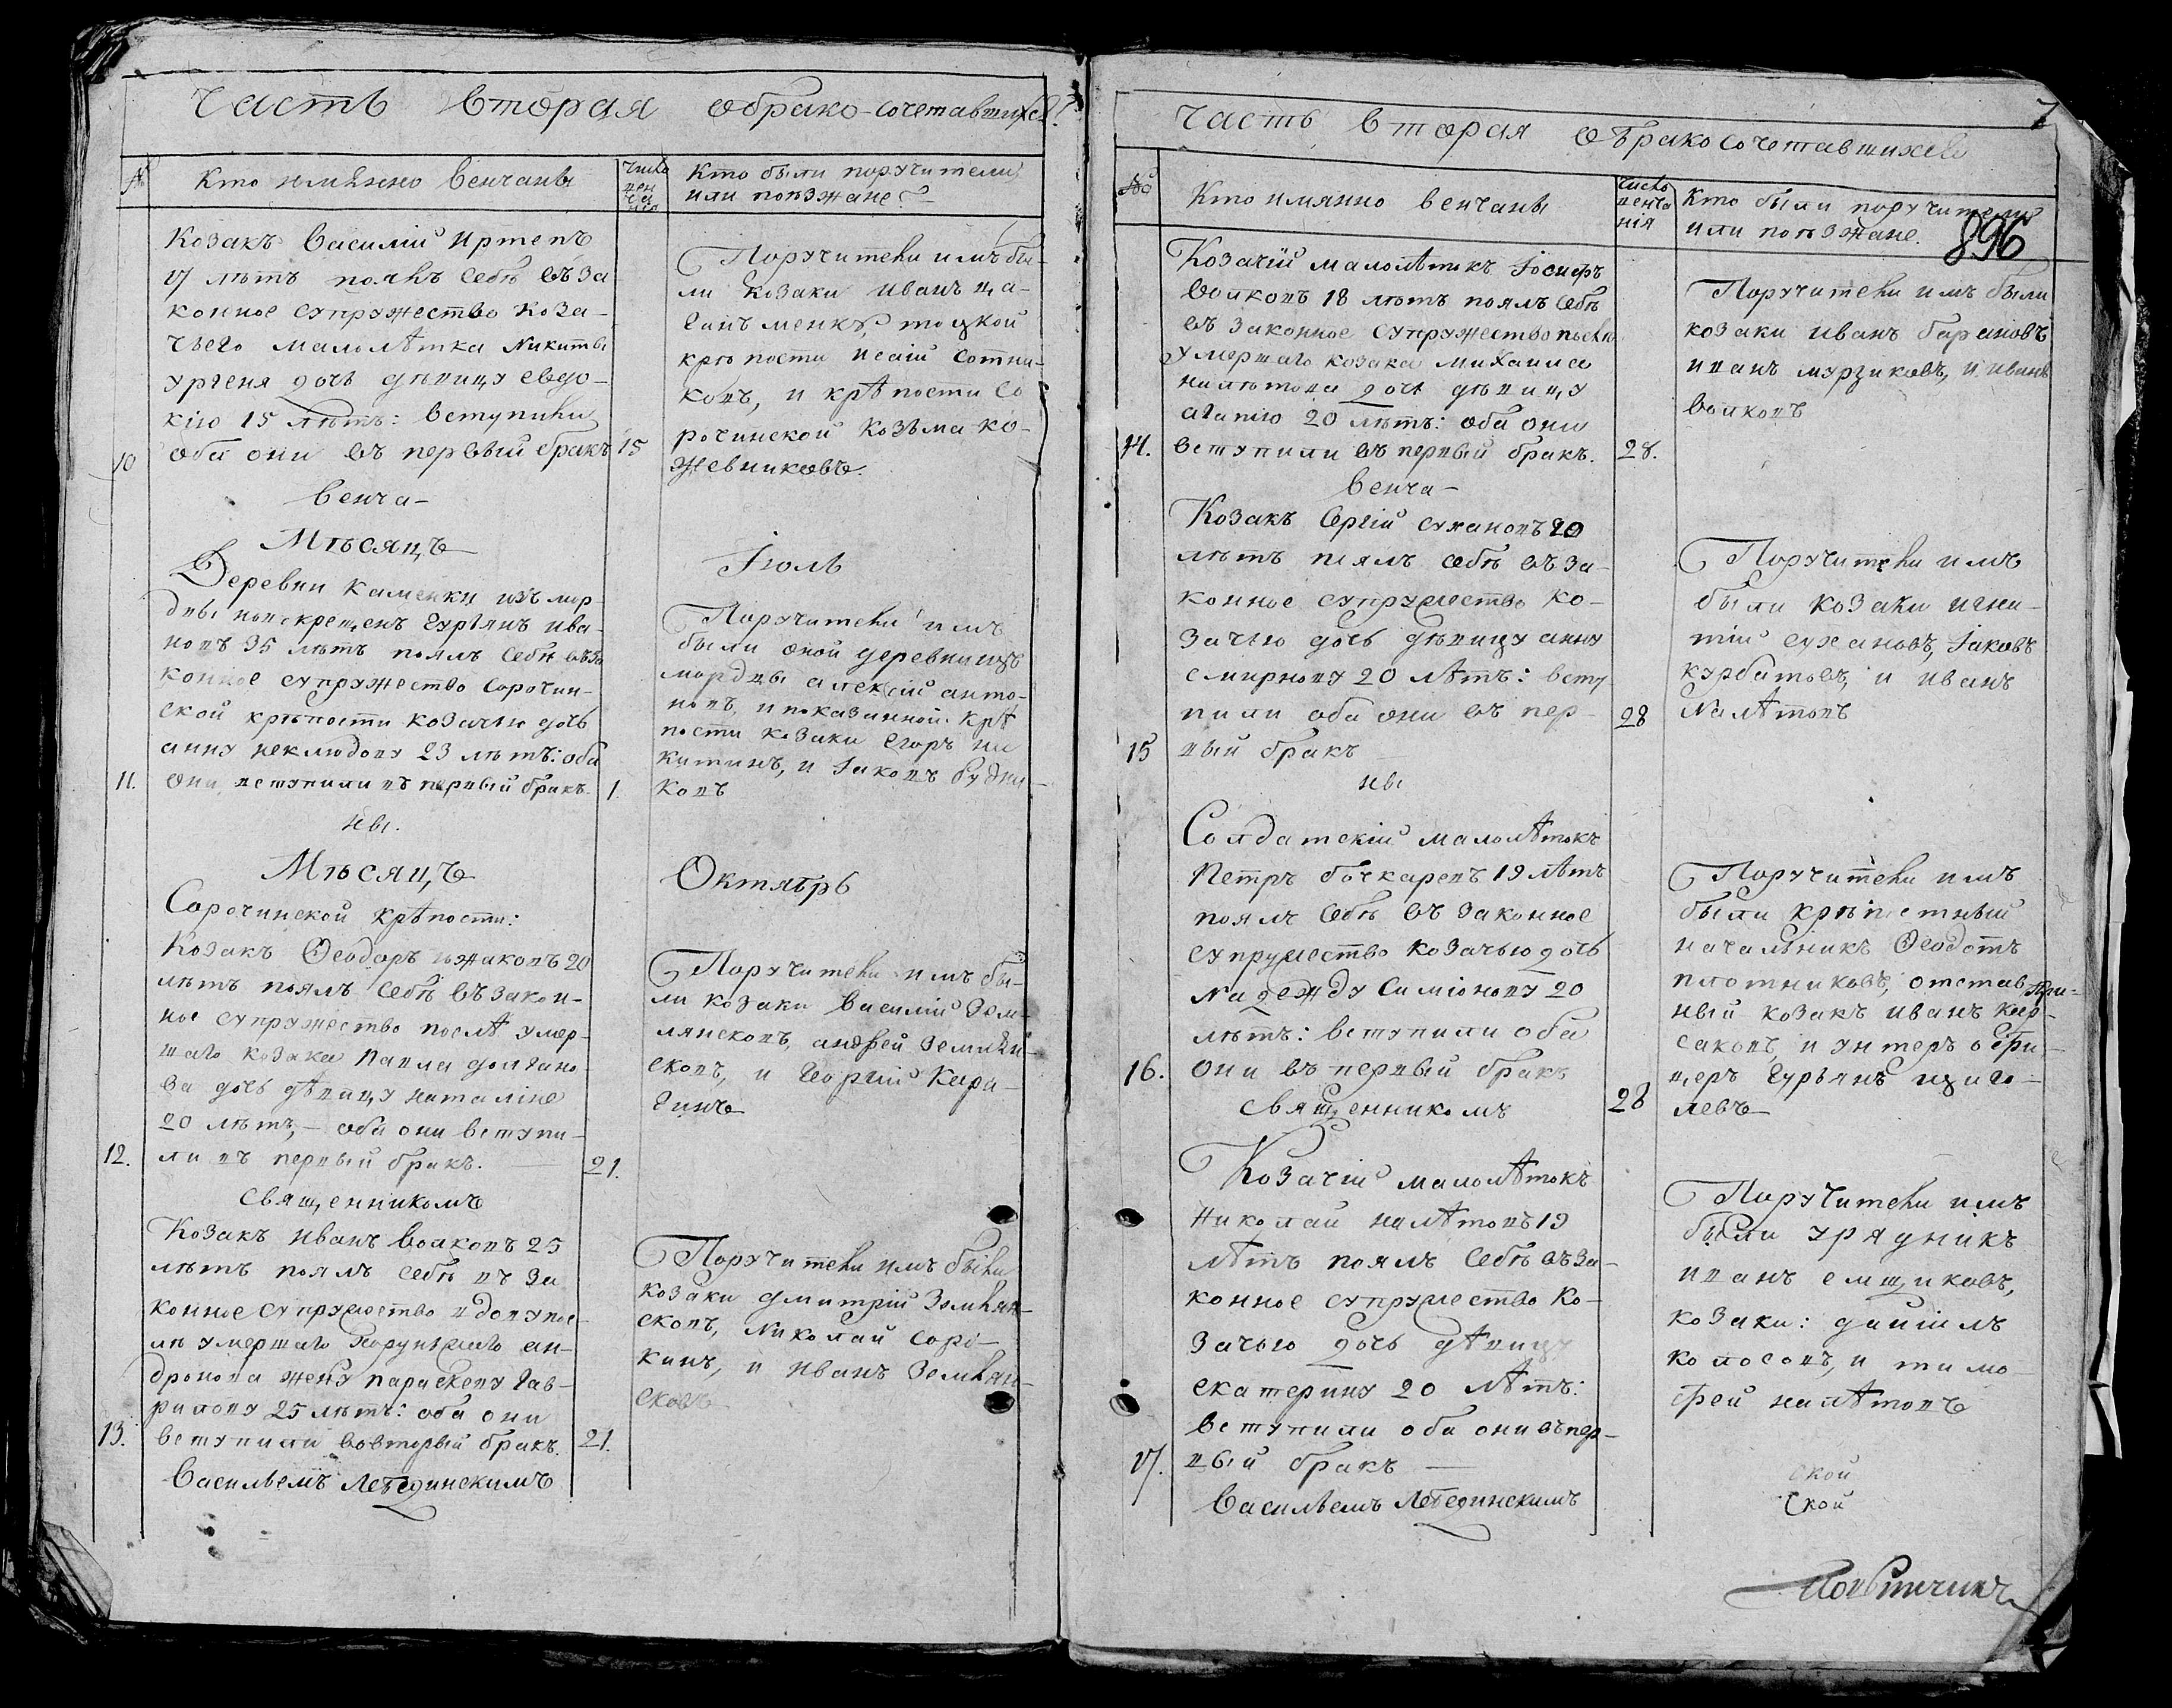 Часть вторая обрако-сочетавшихся
№
Кто имянно венчаны
число
вен
ча
нія
Кто были поручители
или поѣзжане?
Козакъ Василій
17 лѣтъ поялъ себѣ въ за
конное супружество коза-
чьего малолѣтка Никиты
дочь дѣвицу Евдо-
кію 15 лѣтъ: вступили
10
оба они въ первый бракъ
15
Поручители имъ бы-
ли козаки Иванъ
тоцкой
крѣпости Исаій Сотни-
ковъ, и крѣпости Со
рочинской Козьма Ко-
жевниковъ.
венча-
Мѣсяцъ
Іюль
Деревни Каменки изъ мор-
двы новокрещенъ Гурьянъ Ива-
новъ 35 лѣтъ поялъ себѣ въ за
конное супружество Сорочин-
ской крѣпости козачью дочь
Анну Неклюдову 23 лѣтъ: оба
11.
они вступили въ первый бракъ
1.
Поручители имъ
были оной деревни изъ
мордвы Алексій Анто-
новъ, и показанной крѣ
пости козаки Егоръ Ни
китинъ, и Іаковъ Будни-
ковъ
ны.
Мѣсяцъ
Октябрь
Сорочинской крѣпости:
Козакъ Ѳеодоръ 20
лѣтъ поялъ себѣ въ закон-
ное супружество послѣ умер-
шаго козака Павла Долгано-
ва дочь дѣвицу Наталію
20 лѣтъ, - оба они вступи-
12.
ли въ первый бракъ.
21.
Поручители имъ бы-
ли козаки Василій Зем-
лянсковъ, Андрей Землян-
сковъ, и Георгій Кара-
гинъ
священникомъ
Козакъ Иванъ Волковъ 25
лѣтъ поялъ себѣ въ за
конное супружество вдову пос-
лѣ умершаго Ан-
дронова жену Параскеву Гав-
рилову 25 лѣтъ: оба они
13.
вступили вовторый бракъ.
21.
Поручители имъ были
козаки Дмитрій Землян-
сковъ, Николай Соро-
кинъ, и Иванъ Землян-
сковъ
Васильемъ Лебединскимъ
7
Часть вторая обракосочетавшихся
№
Кто имянно венчаны
число
венча
нія
Кто были поручители
или поѣзжане.
896
Козачій малолѣтокъ Іосифъ
Волковъ 18 лѣтъ поялъ себѣ
въ законное супружество послѣ
умершаго козака Михаила
Налѣтова дочь дѣвицу
Агапію 20 лѣтъ: оба они
14.
вступили въ первый бракъ.
28.
Поручители имъ были
козаки Иванъ Барановъ
Иванъ Мурзиковъ, и Иванъ
Волковъ
венча-
Козакъ Сергій Сухановъ 20
лѣтъ поялъ себѣ въ за-
конное супружество ко-
зачью дочь дѣвицу Анну
Смирнову 20 лѣтъ: всту
пили оба они въ пер-
28
15
вый бракъ
Поручители имъ
были козаки Игна-
тій Сухановъ, Іаковъ
Курбатовъ, и Иванъ
Налѣтовъ
ны
Солдатскій малолѣтокъ
Петръ Бочкаревъ 19 лѣтъ
поялъ себѣ въ законное
супружество козачью дочь
Надежду Симіонову 20
лѣтъ: вступили оба
16.
они въ первый бракъ
28
Поручители имъ
были крѣпостный
начальникъ Ѳеодотъ
Плотниковъ, отстав
ный козакъ Иванъ Кир-
саковъ, и унтеръ офи-
церъ Гурьянъ Щего-
левъ
священникомъ
Козачій малолѣтокъ
Николай Налѣтовъ 19
лѣтъ поялъ себѣ въ за-
конное супружество ко-
зачью дочь дѣвицу
Екатерину 20 лѣтъ:
вступили оба они въ пер-
17.
вый бракъ
Поручители имъ
были урядникъ
Иванъ Емщиковъ,
козаки: Даніилъ
Колосовъ, и Тимо
фей Налѣтовъ
Васильемъ Лебединскимъ
ской
ской